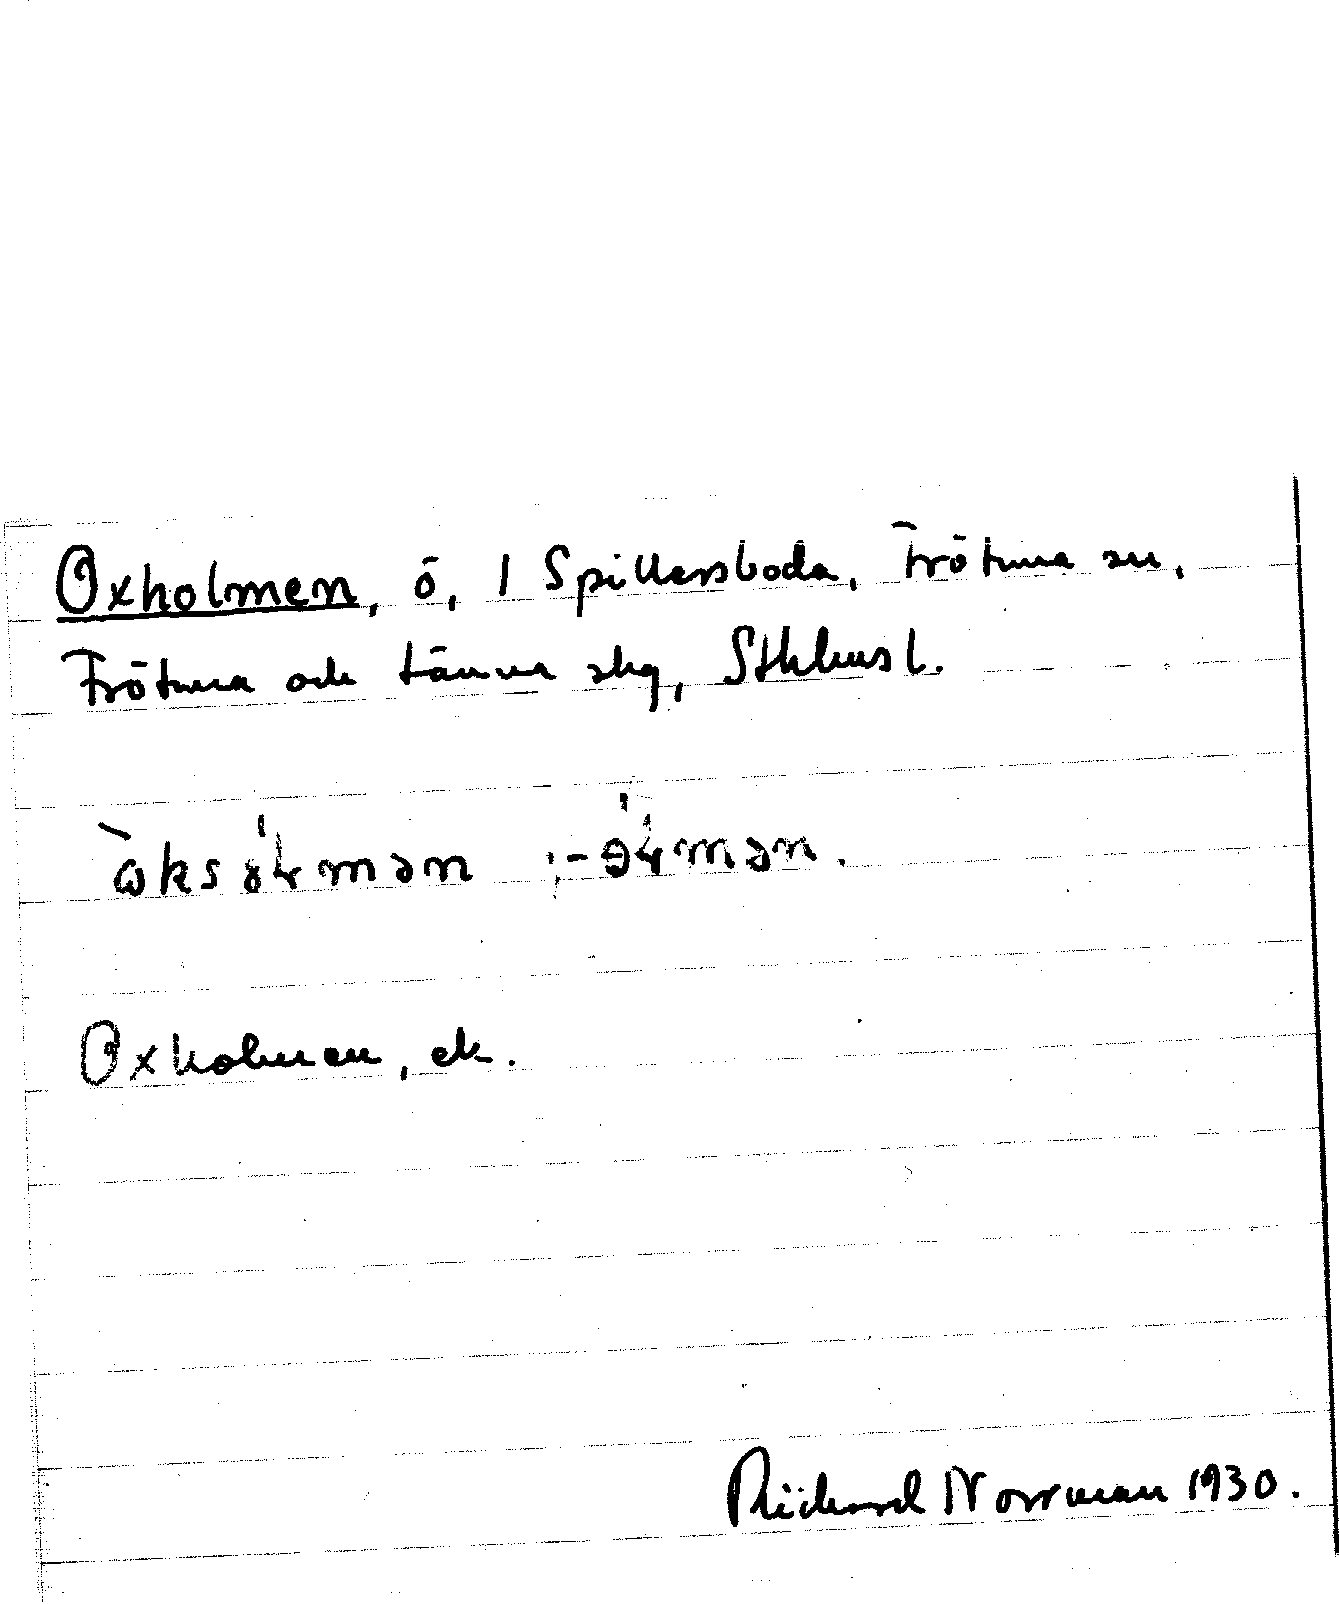 Oxholmen, ö, 1 Spillersboda, Frötuna sn,
Frötuna och Länna skg, Sthlms l.
Oxholmen, ek.
Rickard Norrman 1930.